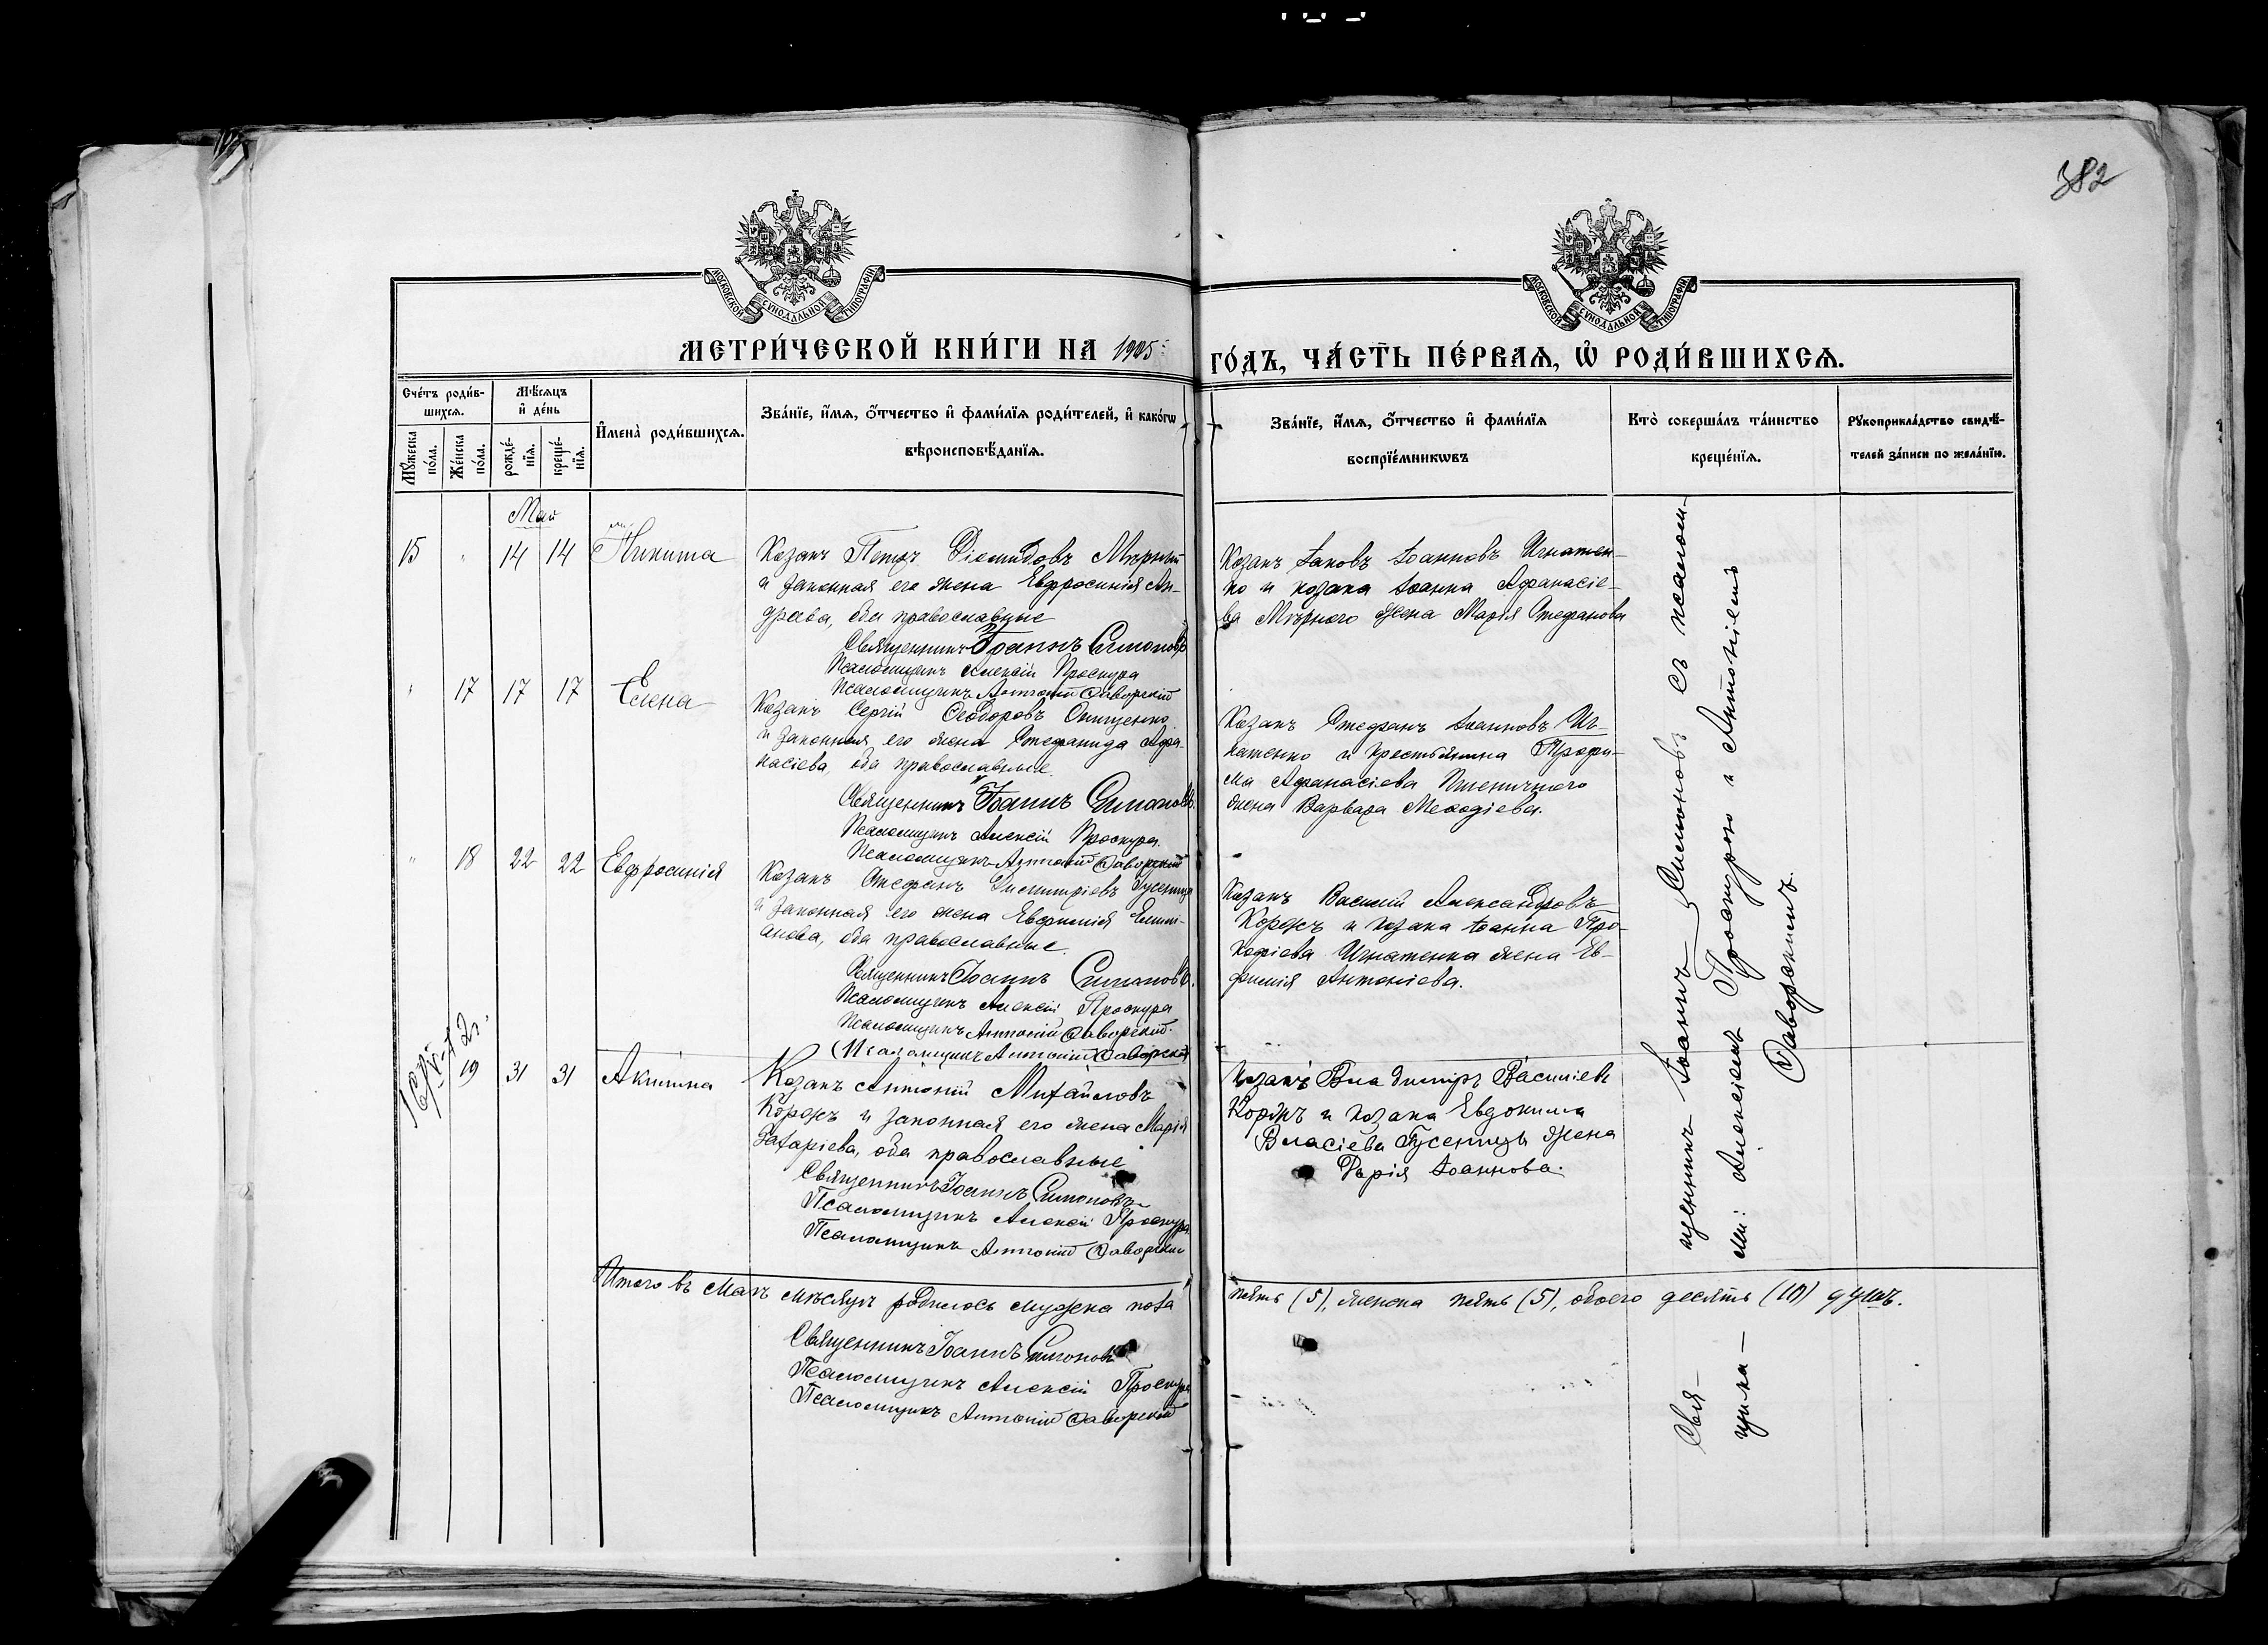 382
МОСКОВСКОЙ СѴНОДАЛЬНОЙ ТИПОГРАФІИ
МОСКОВСКОЙ СѴНОДАЛЬНОЙ ТИПОГРАФІИ
МЕТРИ́ЧЕСКОЙ КНИ́ГИ НА 1905
ГО́ДЪ, ЧА́СТЬ ПЕ́РВАѦ, Ѡ҆ РОДИ́ВШИХСѦ.
Сче́тъ роди́в-
шихсѧ.
Мꙋ́жеска
по́ла.
Же́нска
по́ла.
Мѣ́сѧцъ
и҆ де́нь
рожде́-
нїѧ.
креще́-
нїѧ.
И҆мена̀ роди́вшихсѧ.
Зва́нїе, и҆́мѧ, ѻ҆́тчество и҆ фами́лїѧ роди́телей, и҆ како́гѡ
вѣроисповѣ́данїѧ.
Зва́нїе, и҆́мѧ, ѻ҆́тчество и҆ фами́лїѧ
воспрїе́мникѡвъ
Кто̀ соверша́лъ та́инство
креще́нїѧ.
Рꙋкоприкла́дство свидѣ́-
телей за́писи по жела́нїю.
Май
15 " 14 14 Никита
Козакъ Петръ Діомидовъ Мѣрный
и законная его жена Евфросинія Ан-
дреева, оба православные
Священникъ Іоаннъ Симоновъ
Псаломщикъ Алексій Проскура
Псаломщикъ Антоній Яворскій
Козакъ Іаковъ Іоанновъ Игнатен-
ко и козака Іоанна Афанасіе-
ва Мѣрного жена Марія Стефанова
" 17 17 17 Елена
Козакъ Сергій Ѳеодоровъ Онищенко
и законная его жена Стефанида Афа-
насіева, оба православные.
Священникъ Іоаннъ Симоновъ.
Псаломщикъ Алексій Проскура.
Псаломщикъ Антоній Яворскій
Козакъ Стефанъ Іоанновъ Иг-
натенко и крестьянина Трофи-
ма Афанасіева Пшеничного
жена Варвара Меѳодіева.
" 18 22 22 Евфросинія
Козакъ Стефанъ Димитріевъ Гусеница
и законная его жена Евфимія
оба православные.
Священникъ Іоаннъ Симоновъ.
Псаломщикъ Алексій Проскура
Псаломщикъ Антоній Яворскій.
(Псаломщикъ Антоній Яворскій
Козакъ Василій Александровъ
Коржъ и козака Іоанна Про-
кофіева Игнатенка жена Ев-
фимія Антоніева.
19 31 31 Акилина
Козакъ Антоній Михайловъ
Коржъ и законная его жена Марія
Захаріева, оба православные
Священникъ Іоаннъ Симоновъ
Псаломщикъ Алексій Проскура
Псаломщикъ Антоній Яворскій
Козакъ Владиміръ Василіевъ
Коржъ и козака Евдокима
Власіева Гусеницы жена
Дарія Іоаннова.
Свя-
щенникъ Іоаннъ Симоновъ съ псалом-
щика-
ми: Алексіемъ Проскурою и Антоніемъ
Яворскимъ.
Итого въ Маѣ мѣсяцѣ родилось мужска пола
пять (5), женска пять (5), обоего десять (10) душъ.
Священникъ Іоаннъ Симоновъ
Псаломщикъ Алексій Проскура
Псаломщикъ Антоній Яворскій